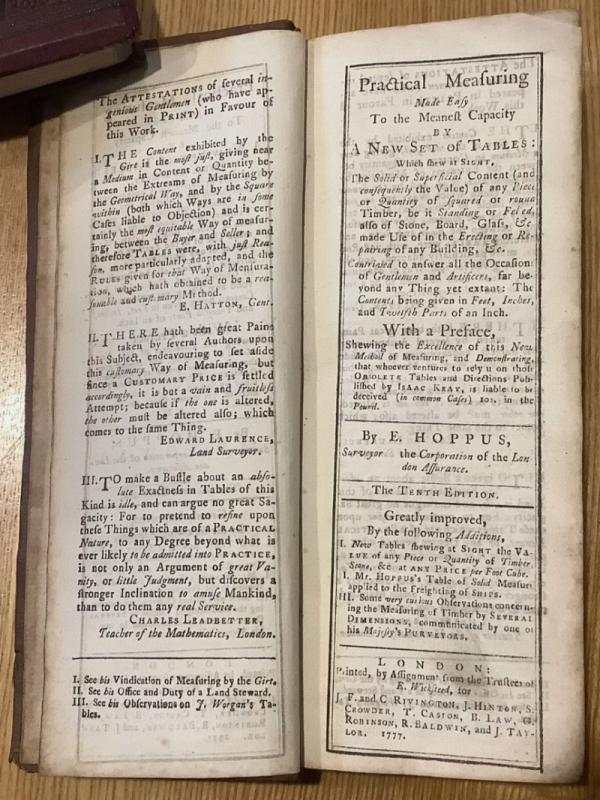 The ATTESTATIONS of several in-
genious Gentlemen (who have ap-
peared in PRINT) in Favour of
this Work.
I. THE Content exhibited by the
Girt is the most just, giving near
a Medium in Content or Quantity be-
tween the Extreams of Measuring by
the Geometrical Way, and by the Square
within (both which Ways are in some
Cases liable to Objection) and is cer-
tainly the most equitable Way of measur-
ing, between the Buyer and Seller; and
therefore TABLES were, with just Rea-
son, more particularly adapted, and the
RULES given for that Way of Mensura-
tion, which hath obtained to be a rea-
sonable and customary Method.
E. HATTON, Gent.
II. THERE hath been great Pains
taken by several Authors upon
this Subject, endeavouring to set aside
this customary Way of Measuring, but
since a CUSTOMARY PRICE is settled
accordingly, it is but a vain and fruitless
Attempt; because if the one is altered,
the other must be altered also; which
comes to the same Thing.
EDWARD LAURENCE,
Land Surveyor.
III. TO make a Bustle about an abso-
lute Exactness in Tables of this
Kind is idle, and can argue no great Sa-
gacity: For to pretend to refine upon
these Things which are of a PRACTICAL
Nature, to any Degree beyond what is
ever likely to be admitted into PRACTICE,
is not only an Argument of great Va-
nity, or little Judgment, but discovers a
stronger Inclination to amuse Mankind,
than to do them any real Service.
CHARLES LEADBETTER,
Teacher of the Mathematics, London.
I. See his Vindication of Measuring by the Girt.
II. See his Office and Duty of a Land Steward.
III. See his Observations on J. Worgan's Ta-
bles.
Practical Measuring
Made Easy
To the Meanest Capacity
BY
A NEW SET OF TABLES:
Which shew at SIGHT,
The Solid or Superficial Content (and
consequently the Value) of any Piece
or Quantity of squared or round
Timber, be it Standing or Felled,
also of Stone, Board, Glass, &c
made Use of in the Erecting or Re-
pairing of any Building, &c.
Contrived to answer all the Occasions
of Gentlemen and Artificers, far be-
yond any Thing yet extant: The
Contents being given in Feet, Inches,
and Twelfth Parts of an Inch.
With a Preface,
Shewing the Excellence of this New
Method of Measuring, and Demonstrating,
that whoever ventures to rely upon those
OBSOLETE Tables and Directions Pub-
lished by ISAAC KEAY, is liable to be
deceived (in common Cases) 10s. in the
Pound.
By E. HOPPUS,
Surveyor the Corporation of the Lon
don Assurance.
The TENTH EDITION.
Greatly improved,
By the following Additions,
I. New Tables shewing at SIGHT the VA-
LUE of any Piece or Quantity of Timber,
Stone, &c at ANY PRICE per Foot Cube.
I. Mr. HOPPUS's Table of Solid Measure
applied to the Freighting of SHIPS.
III. Some very curious Observations concern-
ing the Measuring of Timber by SEVERAL
DIMENSIONS, communicated by one of
his Majesty's PURVEYORS.
LONDON:
Printed, by Assignment from the Trustees of
E. Wicksteed, for
J. F. and C RIVINGTON, J. HINTON, S.
CROWDER, T. CASLON, B. LAW, G.
ROBINSON, R. BALDWIN, and J. TAY-
LOR. 1777.